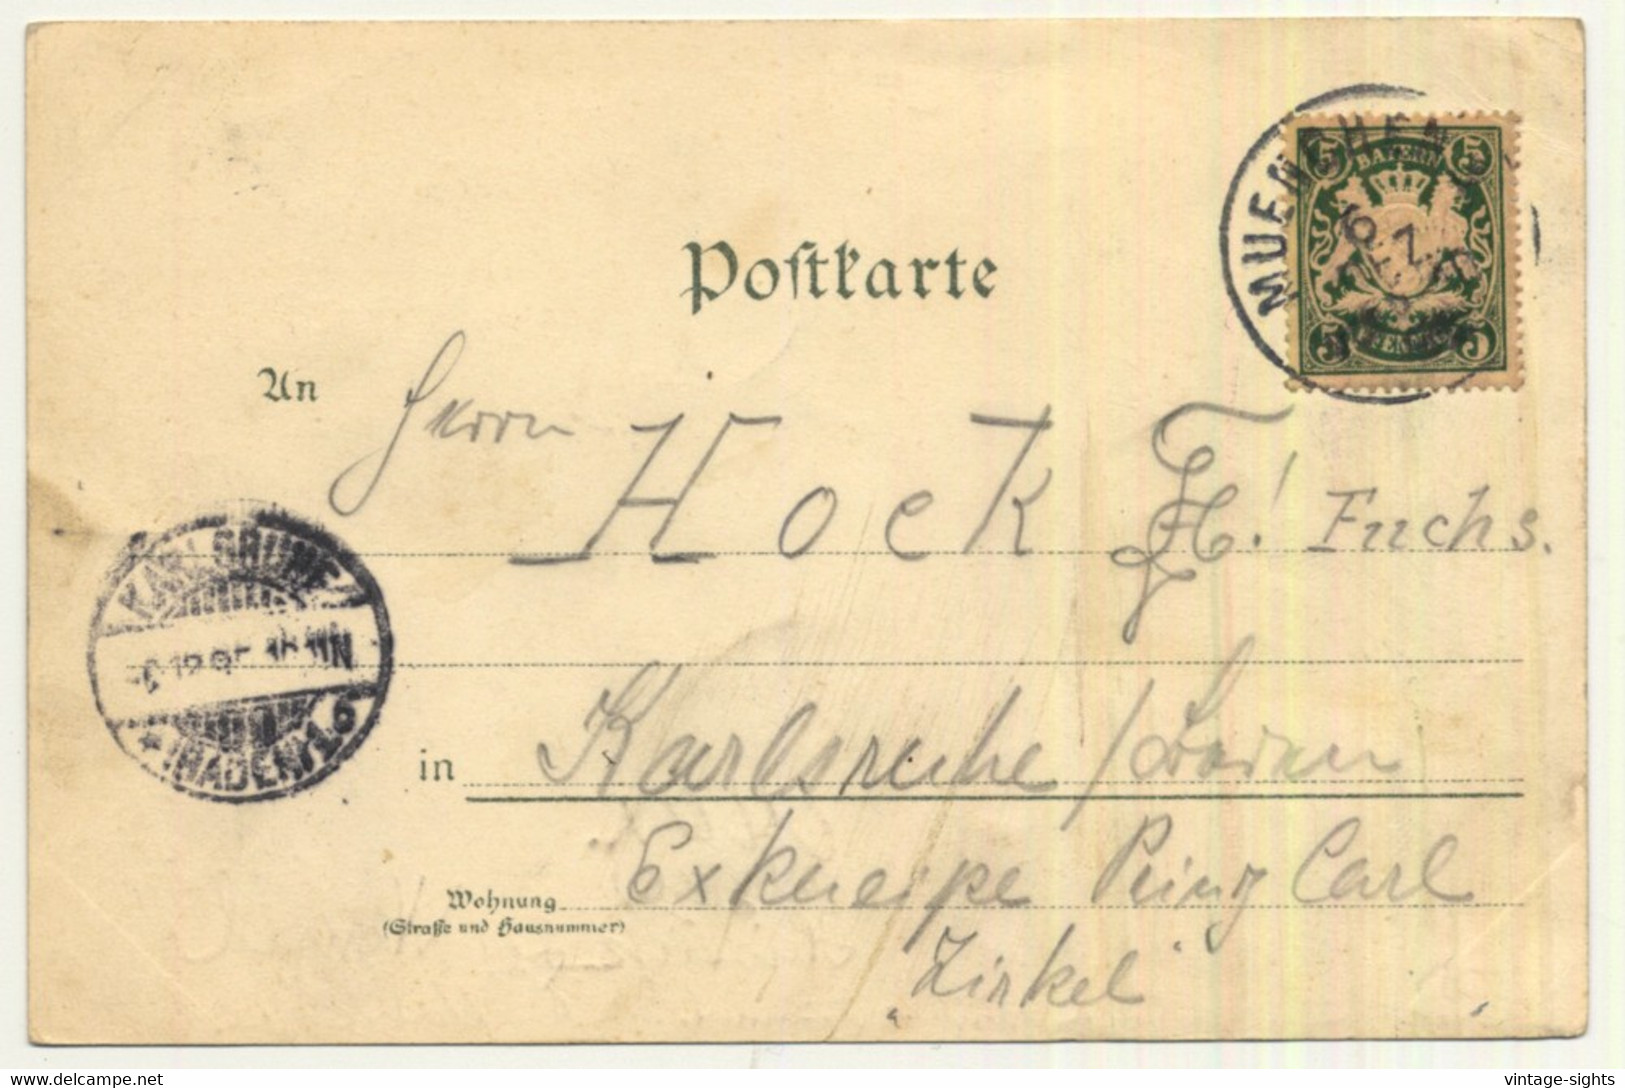 Postkarte
MUENCHEN
6 DEZ
5 BAYERN 5
5 PFENNIG 5
An Herrn Hock ! Fuchs.
KARLSRUHE
12.95
(BADEN) 1.6
in Karlsruhe / Baden
Wohnung Exkneipe Prinz Carl
(Straße und Hausnummer)
„Zirkel"
delcampe.net
vintage-sights